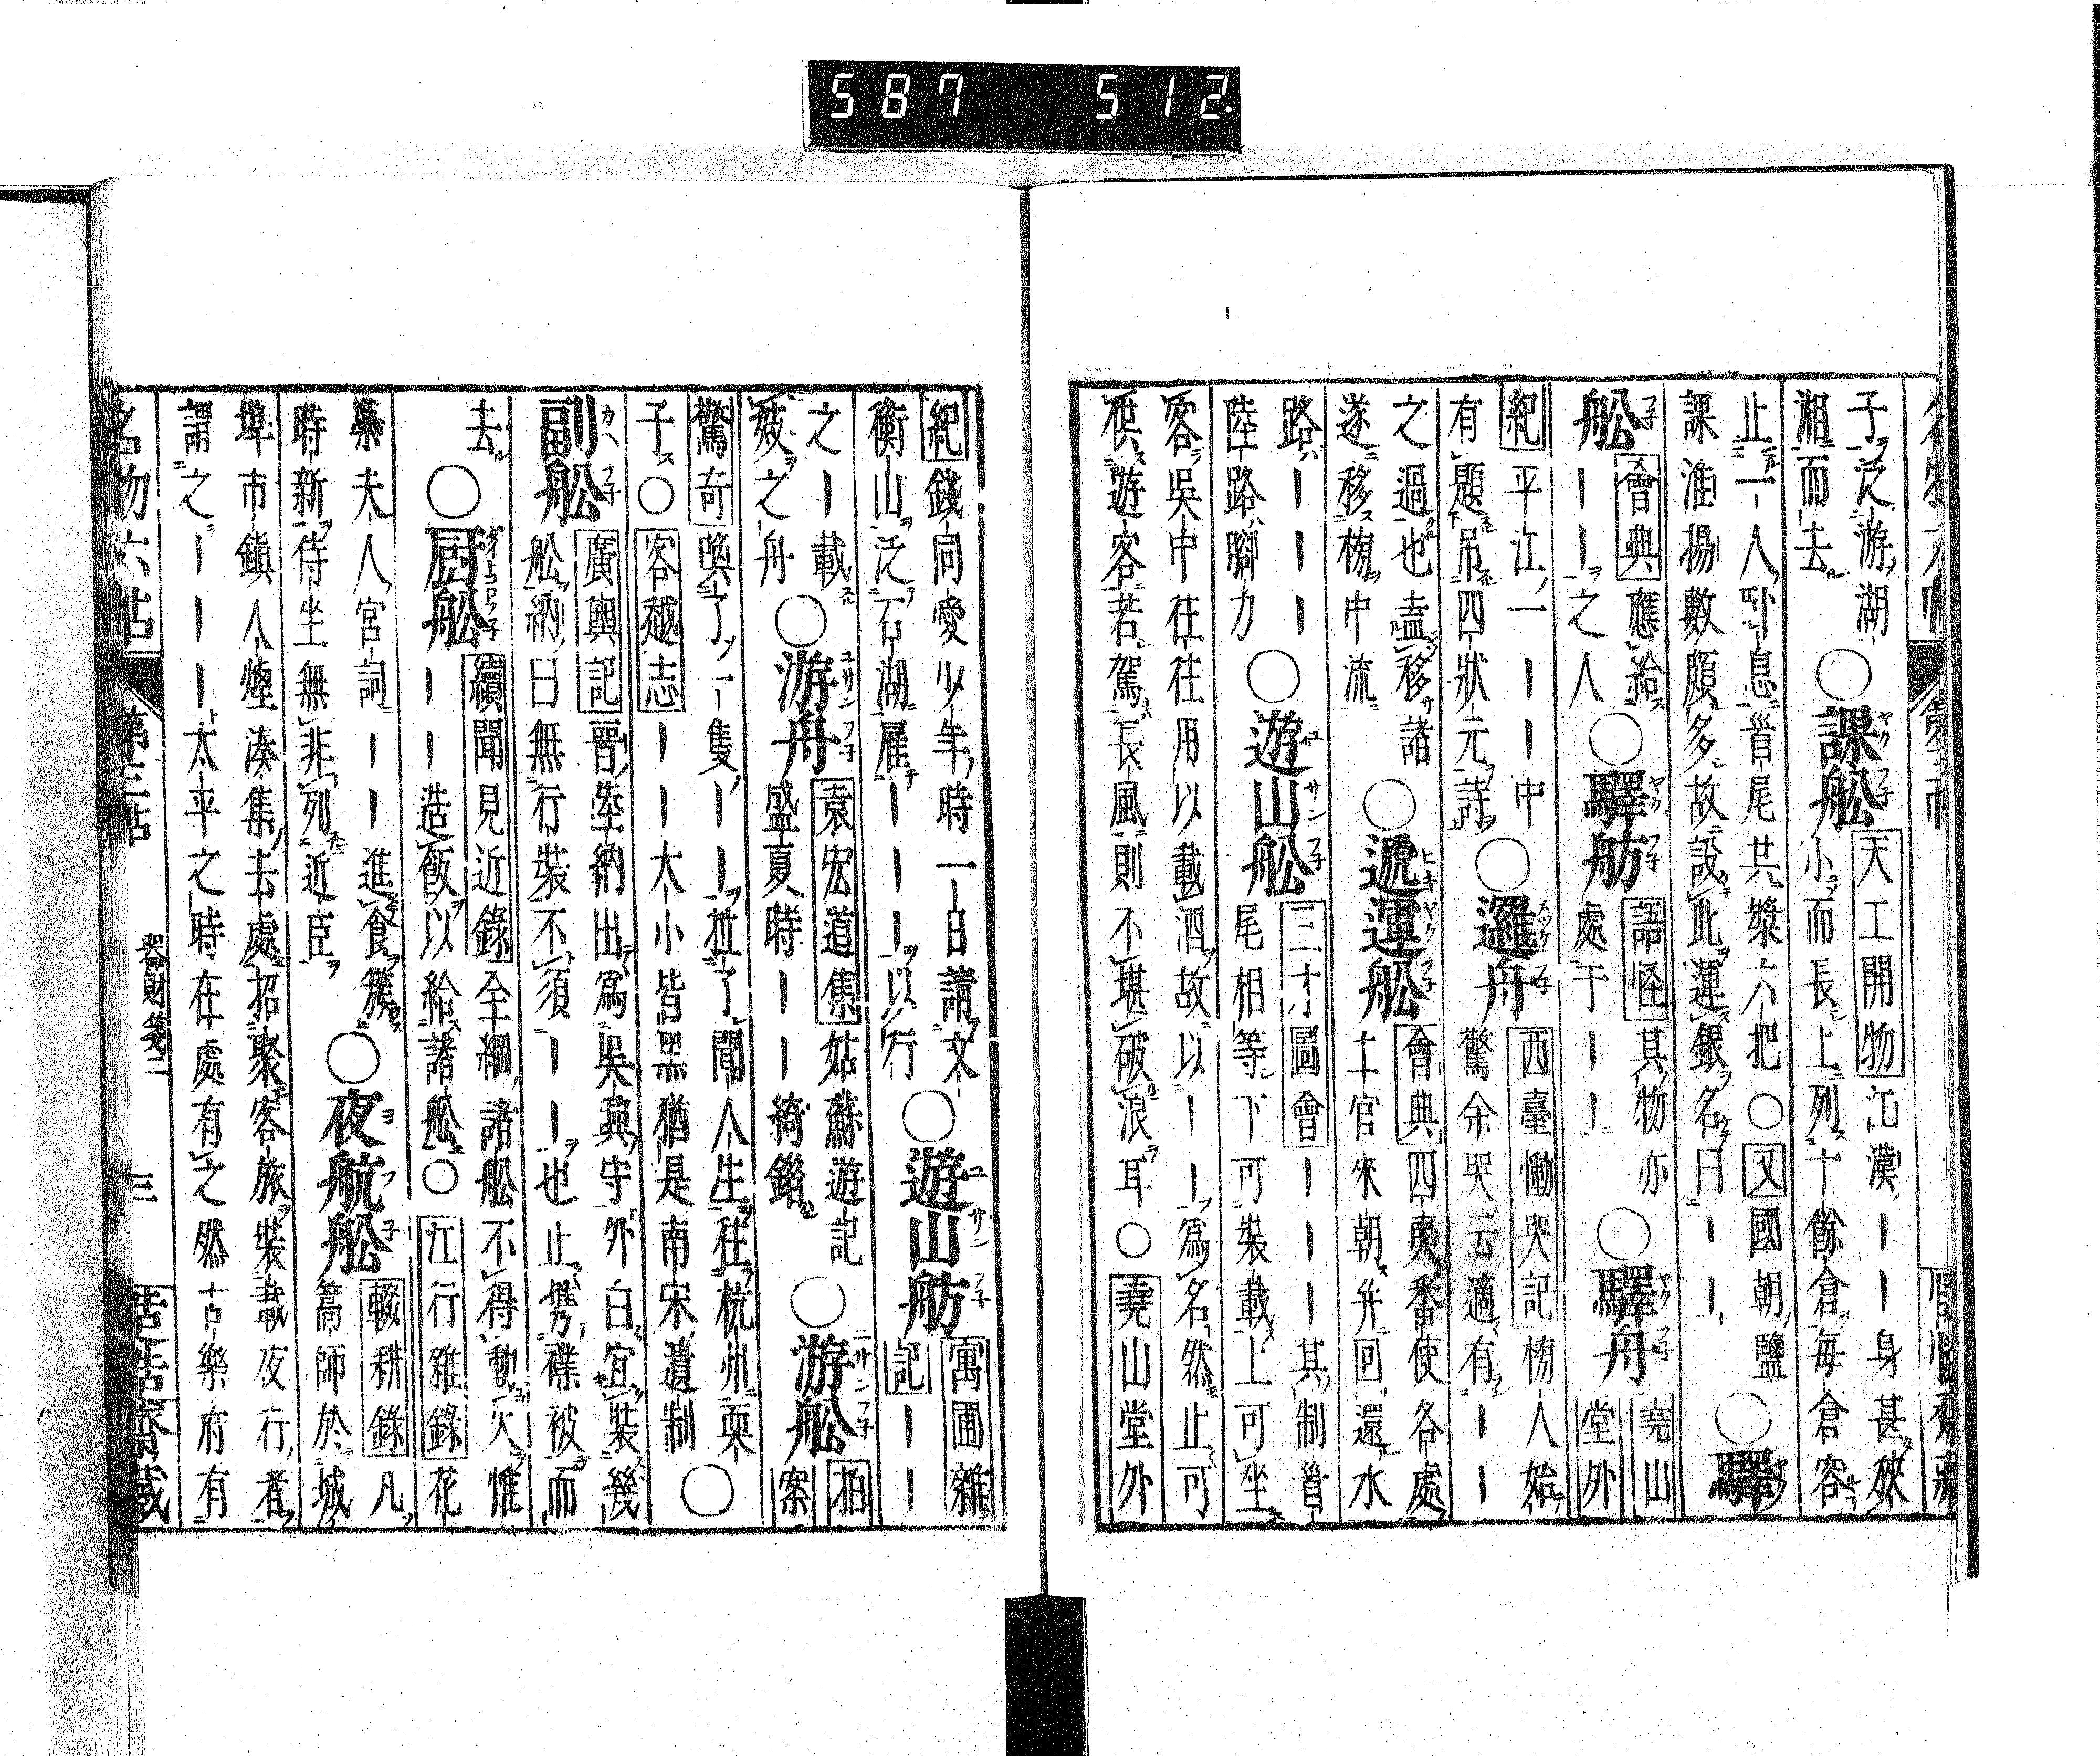 子泛游湖
湘而去
○課舩
天工開物江漢丨丨身甚狹
小而長上列十餘倉每倉容
止一人臥息首尾共槳六把○又國朝鹽
課淮揚數頗多故設此運銀名曰丨丨
○驛
舩
會典應給
丨丨之人
○驛舫
語怪其物亦
處于丨丨
○驛舟
堯山
堂外
紀平江一丨丨中
有題吊四狀元詩
○邏舟
西臺慟哭記榜人始
驚余哭云適有丨丨
之過也盍移諸
遂移榜中流
○遞運舩
會典四夷番使各處
土官來朝并回還水
路丨丨丨
陸路腳力
○遊山舩
三才圖會丨丨丨其制首
尾相等下可裝載上可坐
客吳中往往用以載酒故以丨丨為名然止可
供遊客若駕長風則不堪破浪耳○堯山堂外
紀錢同愛少年時一日請文
衡山泛石湖雇丨丨丨以行
○遊山舫
寓圃雜
記丨丨
之丨載
妓之舟
○游舟
袁宏道集姑蘇遊記
盛夏時丨丨綺錯
○游舩
拍
案
驚奇喚了一隻丨丨在了聞人生往杭州耍
子○客越志丨丨大小皆黑猶是南宋遺制
○
副舩
廣輿記晉陸納出為吳興守外白宜裝幾
舩納曰無行裝不須丨丨也止攜襆被而
去
○厨舩
續聞見近錄全綱諸舩不得動火惟
丨丨造飯以給諸舩○江行雜錄花
蘂夫人宮詞丨丨進食簇
時新侍坐無非列近臣
○夜航舩
輟耕錄凡
篙師於城
埠市鎮人煙湊集去處招聚客旅裝載夜行者
謂之丨丨丨太平之時在處有之然古樂府有
名物六帖 第三帖 器財箋二 三
587 512